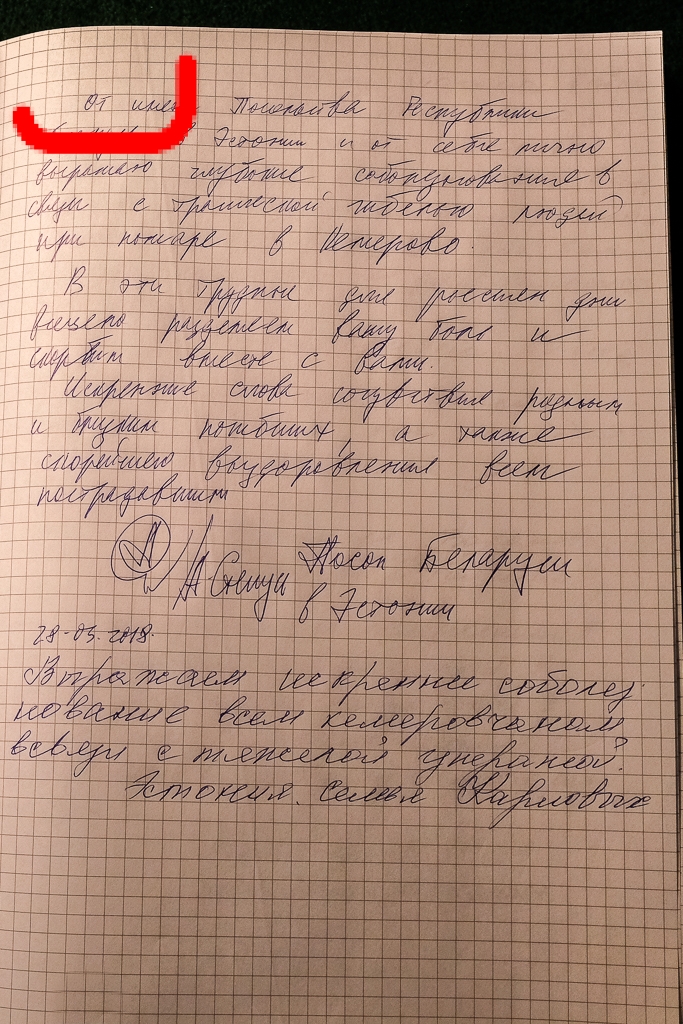 От имени Посольства Республики
Эстонии и от себя лично
выражаю глубокие соболезнования в
связи с трагической гибелью людей
при пожаре в Кемерово.
В эти трудные для россиян дни
разделяем вашу боль и
скорбим вместе с вами.
Искренние слова сочувствия родным
и близким погибших, а также
скорейшего выздоровления всем
пострадавшим
Посол Беларуси
в Эстонии
28.03.2018.
Выражаем искренние соболез-
нование всем кемеровчаном
в связи с тяжелой утратой.
Эстония. Семья Карловых